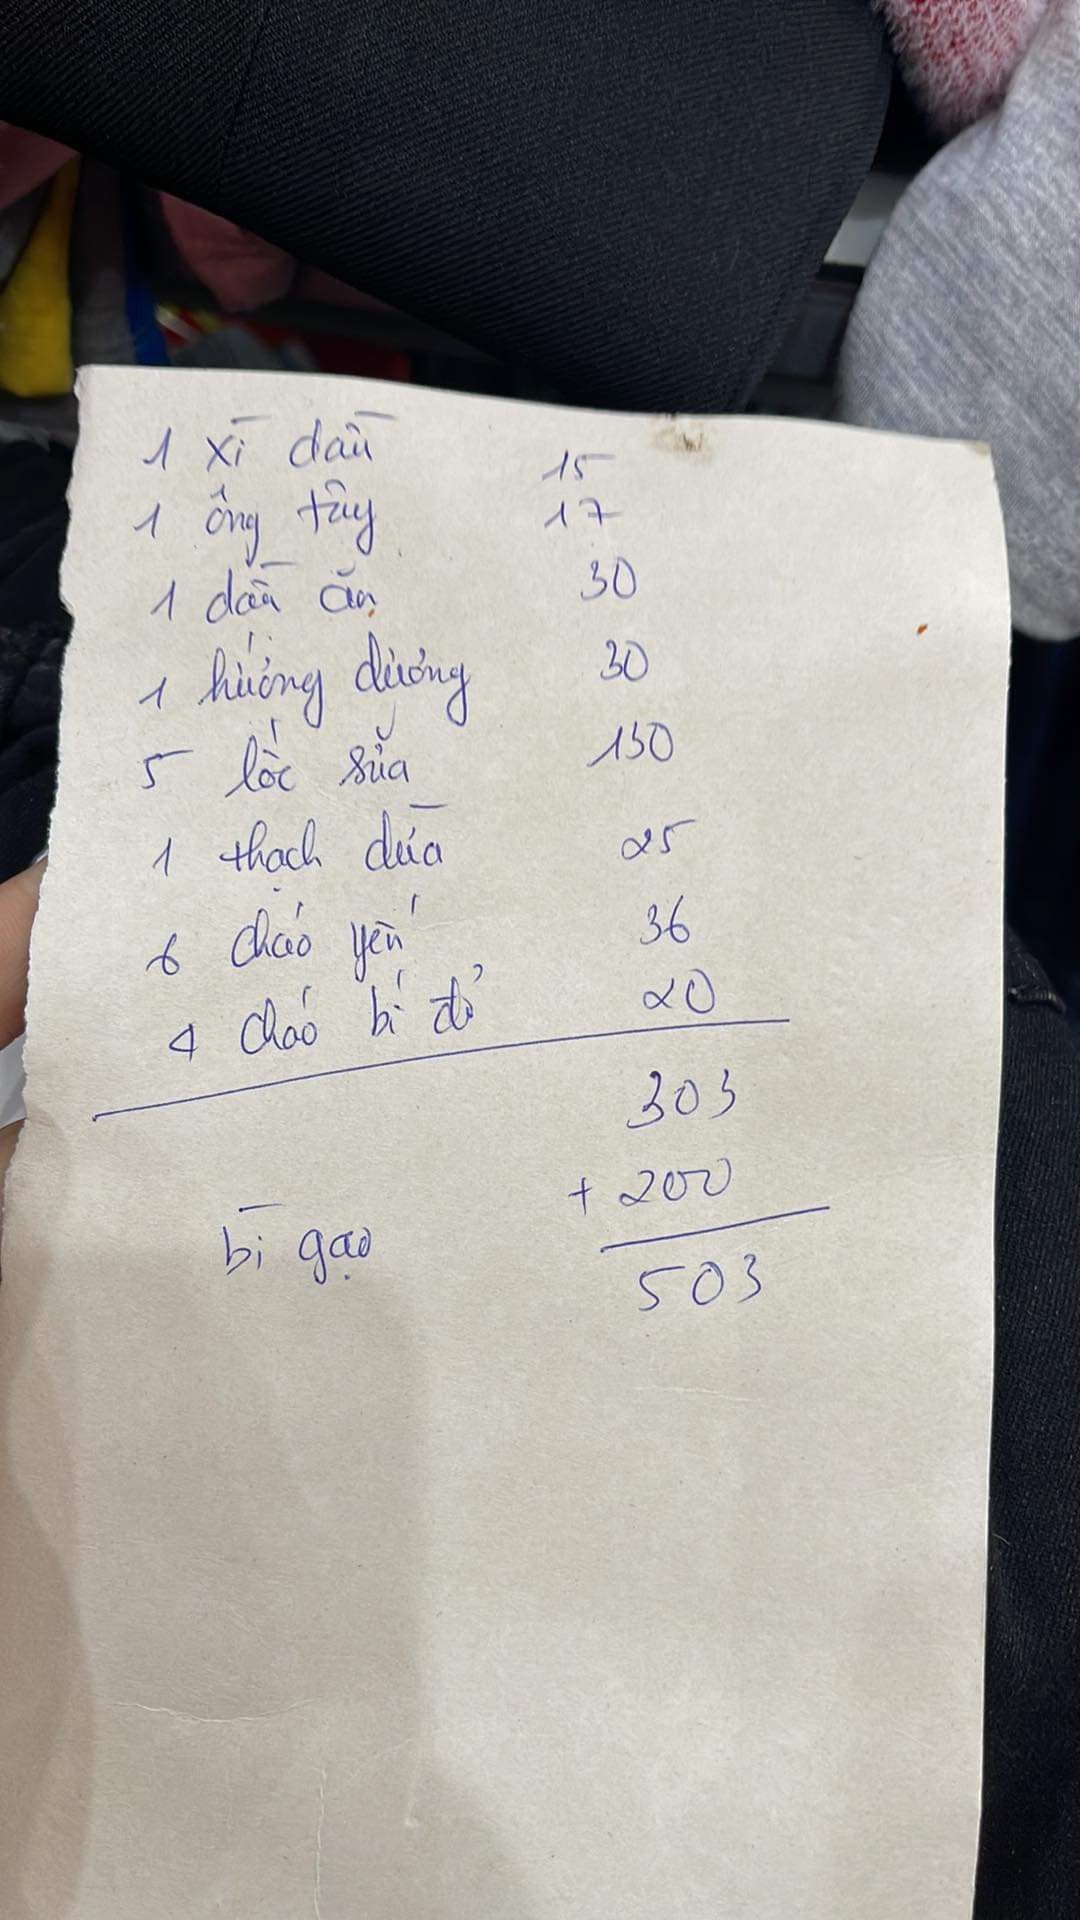 1 xì dầu 15
1 ông tây 17
1 dầu ăn 30
1 hướng dương 30
5 lốc sữa 130
1 thạch dừa 25
6 cháo yến 36
4 cháo bí đỏ 20
303
+ 200
bì gạo
503